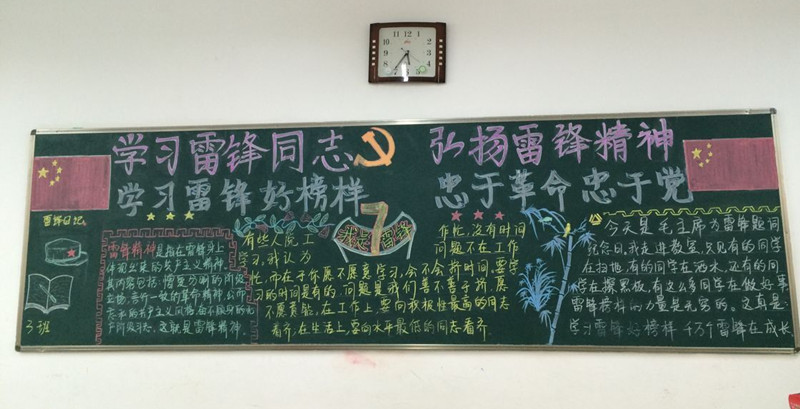 学习雷锋同志 弘扬雷锋精神
学习雷锋好榜样 忠于革命忠于党
雷锋日记
3班
雷锋精神是指在雷锋身上
体现出来的共产主义精神,
其内容包括:憎爱分明的阶级
立场、言行一致的革命精神、公而
忘私的共产主义风格、奋不顾身的无
产阶级斗志。这就是雷锋精神
有些人说工
学习,我认为
忙,而在于你愿不愿意学习,会不会挤时间,要学
习的时间是有的,问题是我们善不善于挤,愿
不愿意钻,在工作上,要向积极性最高的同志
看齐,在生活上,要向水平最低的同志看齐。
作忙,没有时间
问题不在工作
今天是毛主席为雷锋题词
纪念日,我走进教室,只见有的同学
在扫地,有的同学在洒水,还有的同
学在擦黑板,有这么多同学在做好事
雷锋榜样的力量是无穷的。这真是:
学习雷锋好榜样 千万个雷锋在成长